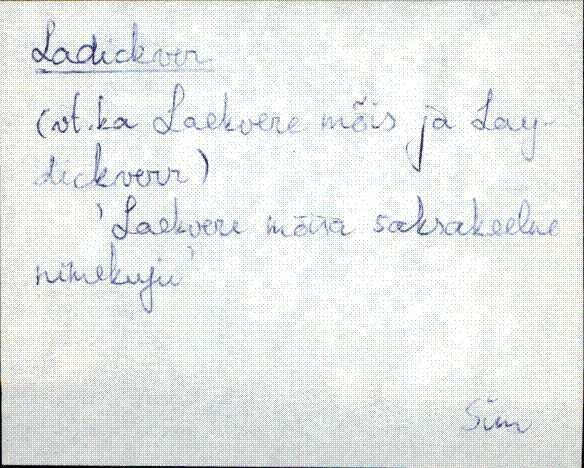 Ladickver
(vt. ka Laekvere mõis ja Lay-
dickverr)
'Laekvere mõisa saksakeelne
nimekuju'
Sim